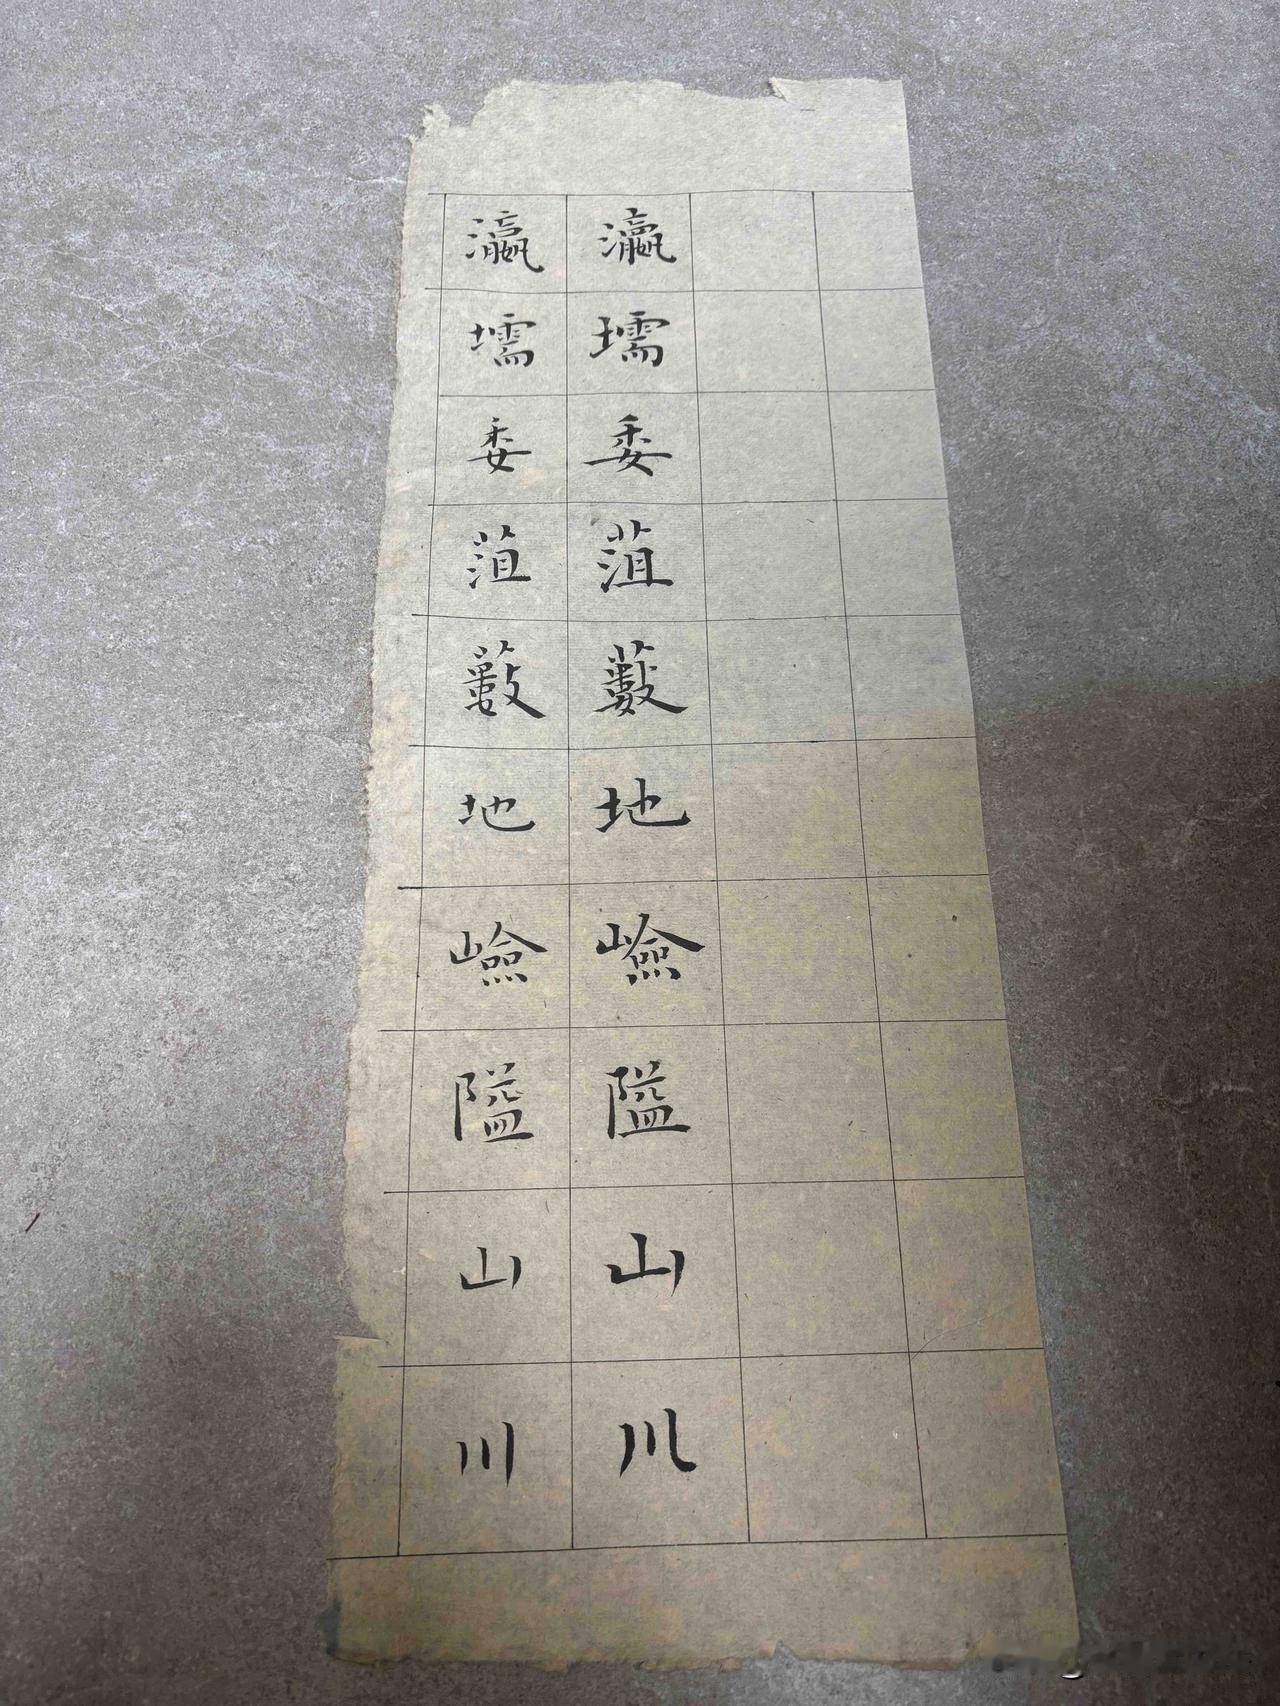 瀛壖委菹藪地嶮隘山川
瀛壖委菹藪地嶮隘山川